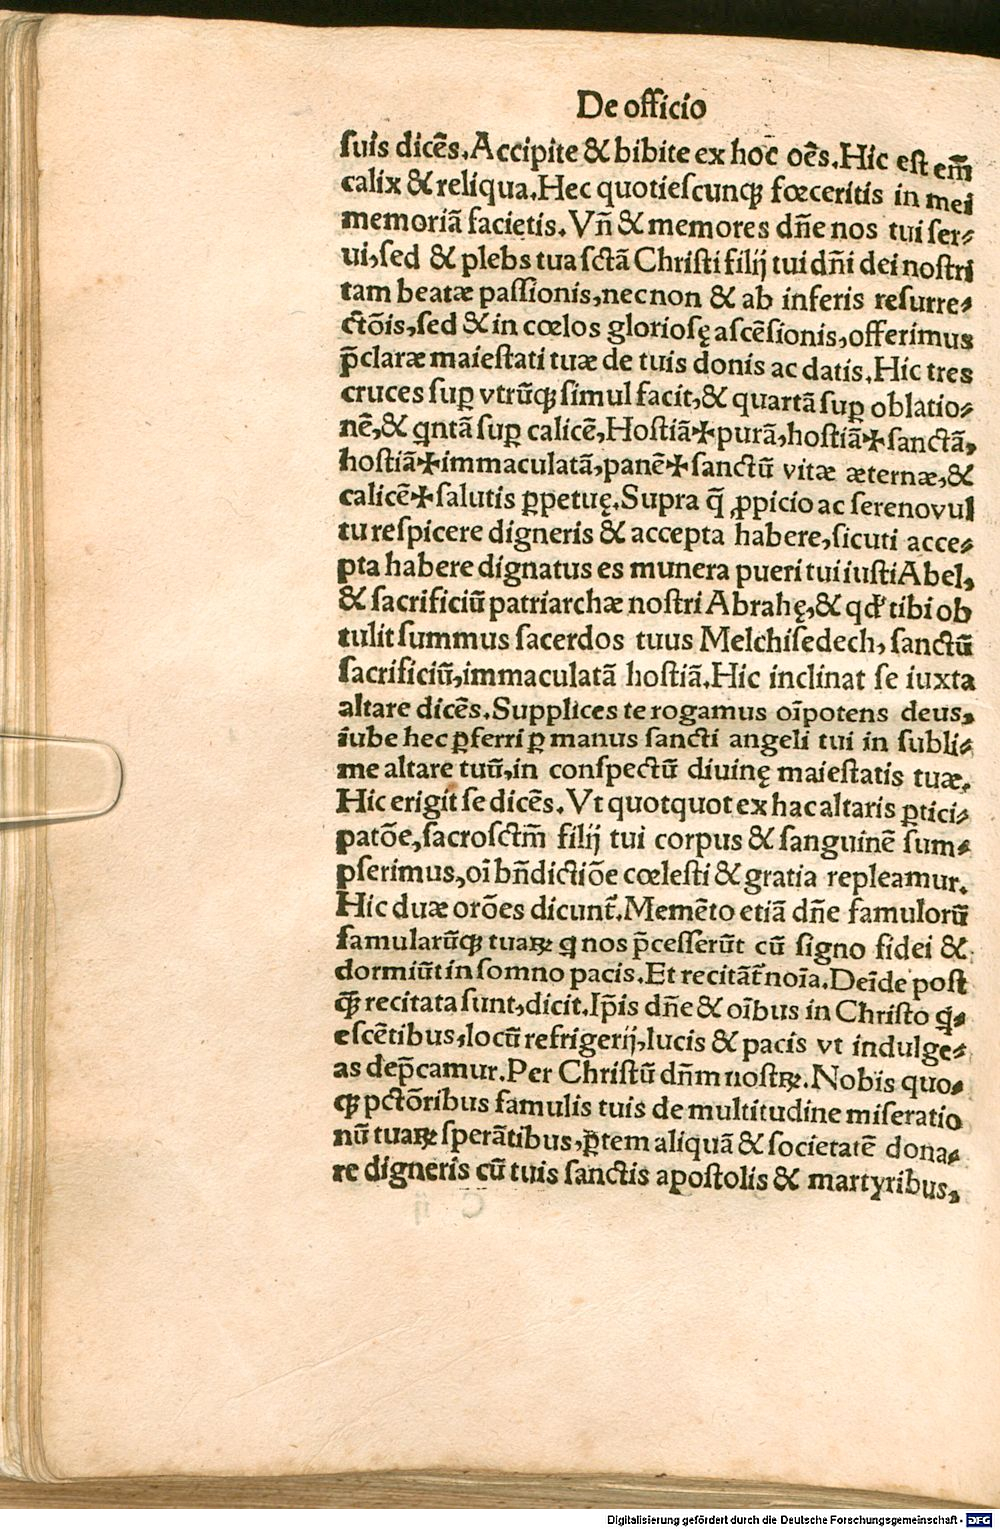 De officio
suis dicẽs.Accipite & bibite ex hoc oẽs.Hic est em̃
calix & reliqua.Hec quotiescunqꝫ fœceritis in mei
memoriã facietis.Vñ & memores dñe nos tui ser⸗
ui,sed & plebs tua sctã Christi filij tui dñi dei nostri
tam beatæ passionis,necnon & ab inferis resurre⸗
ctõis,sed & in cœlos gloriosę ascẽsionis,offerimus
p̃claræ maiestati tuæ de tuis donis ac datis.Hic tres
cruces suꝑ vtrũqꝫ simul facit,& quartã suꝑ oblatio⸗
nẽ,& qntã suꝑ calicẽ,Hostiã✠purã,hostiã✠sanctã,
hostiã✠immaculatã,panẽ✠sanctũ vitæ æternæ,&
calicẽ✠salutis ꝑpetuę.Supra q̃ ꝓpicio ac sereno vul
tu respicere digneris & accepta habere,sicuti acce⸗
pta habere dignatus es munera pueri tui iusti Abel,
& sacrificiũ patriarchæ nostri Abrahę,& qđ tibi ob
tulit summus sacerdos tuus Melchisedech, sanctũ
sacrificiũ,immaculatã hostiã.Hic inclinat se iuxta
altare dicẽs.Supplices te rogamus oĩpotens deus,
iube hec ꝑferri ꝑ manus sancti angeli tui in subli⸗
me altare tuũ,in conspectũ diuinę maiestatis tuæ.
Hic erigit se dicẽs.Vt quotquot ex hac altaris ꝑtici⸗
patõe,sacrosctm̃ filij tui corpus & sanguinẽ sum⸗
pserimus,oĩ bñdictiõe cœlesti & gratia repleamur.
Hic duæ orões dicunt᷑.Memẽto etiã dñe famulorũ
famularũqꝫ tuaꝝ q nos p̃cesserũt cũ signo fidei &
dormiũt in somno pacis.Et recitãt᷑ noĩa.Deĩde post
qꝫ̃ recitata sunt,dicit.Ip̃is dñe & oĩbus in Christo q⸗
escẽtibus,locũ refrigerij,lucis & pacis vt indulge⸗
as dep̃camur.Per Christũ dñm nostꝝ.Nobis quo⸗
qꝫ pctõribus famulis tuis de multitudine miseratio
nũ tuaꝝ sperãtibus,ꝑtem aliquã & societatẽ dona⸗
re digneris cũ tuis sanctis apostolis & martyribus,
Digitalisierung gefördert durch die Deutsche Forschungsgemeinschaft - DFG